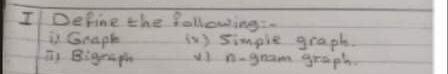 I Define the following:-
i) Graph iv) Simple graph.
ii) Bigraph v) n-gnam graph.